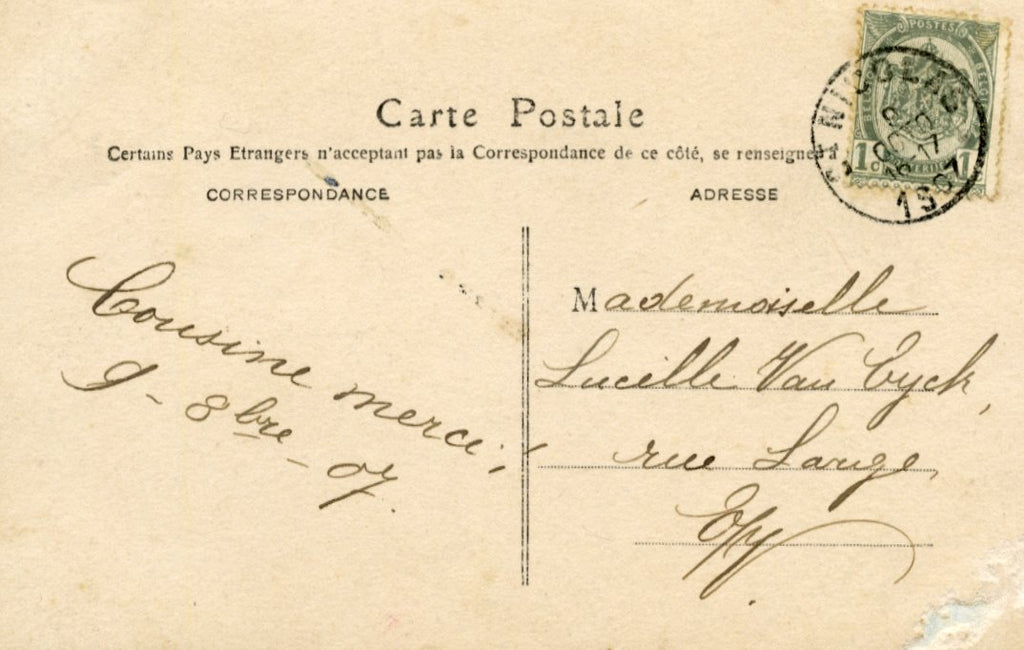 Carte Postale
Certains Pays Etrangers n'acceptant pas la Correspondance de ce côté, se renseigner à
CORRESPONDANCE
ADRESSE
POSTES
NICOLAS
1907
1 1
Cousine merci!
8bre - 07.
Mademoiselle
Lucille Van Eyck,
rue Large,
E/V